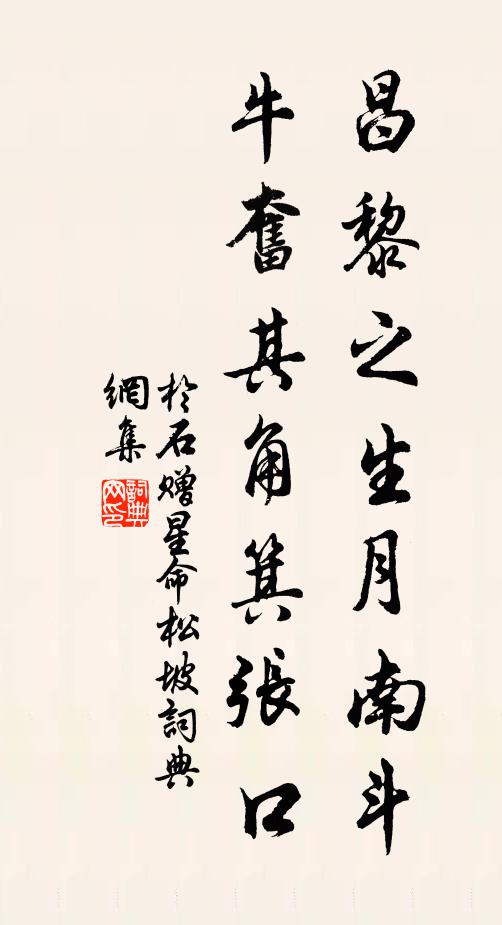 昌黎之生月南斗
牛奮其角箕張口
於石贈星命松坡詞典
網集
詞典網印